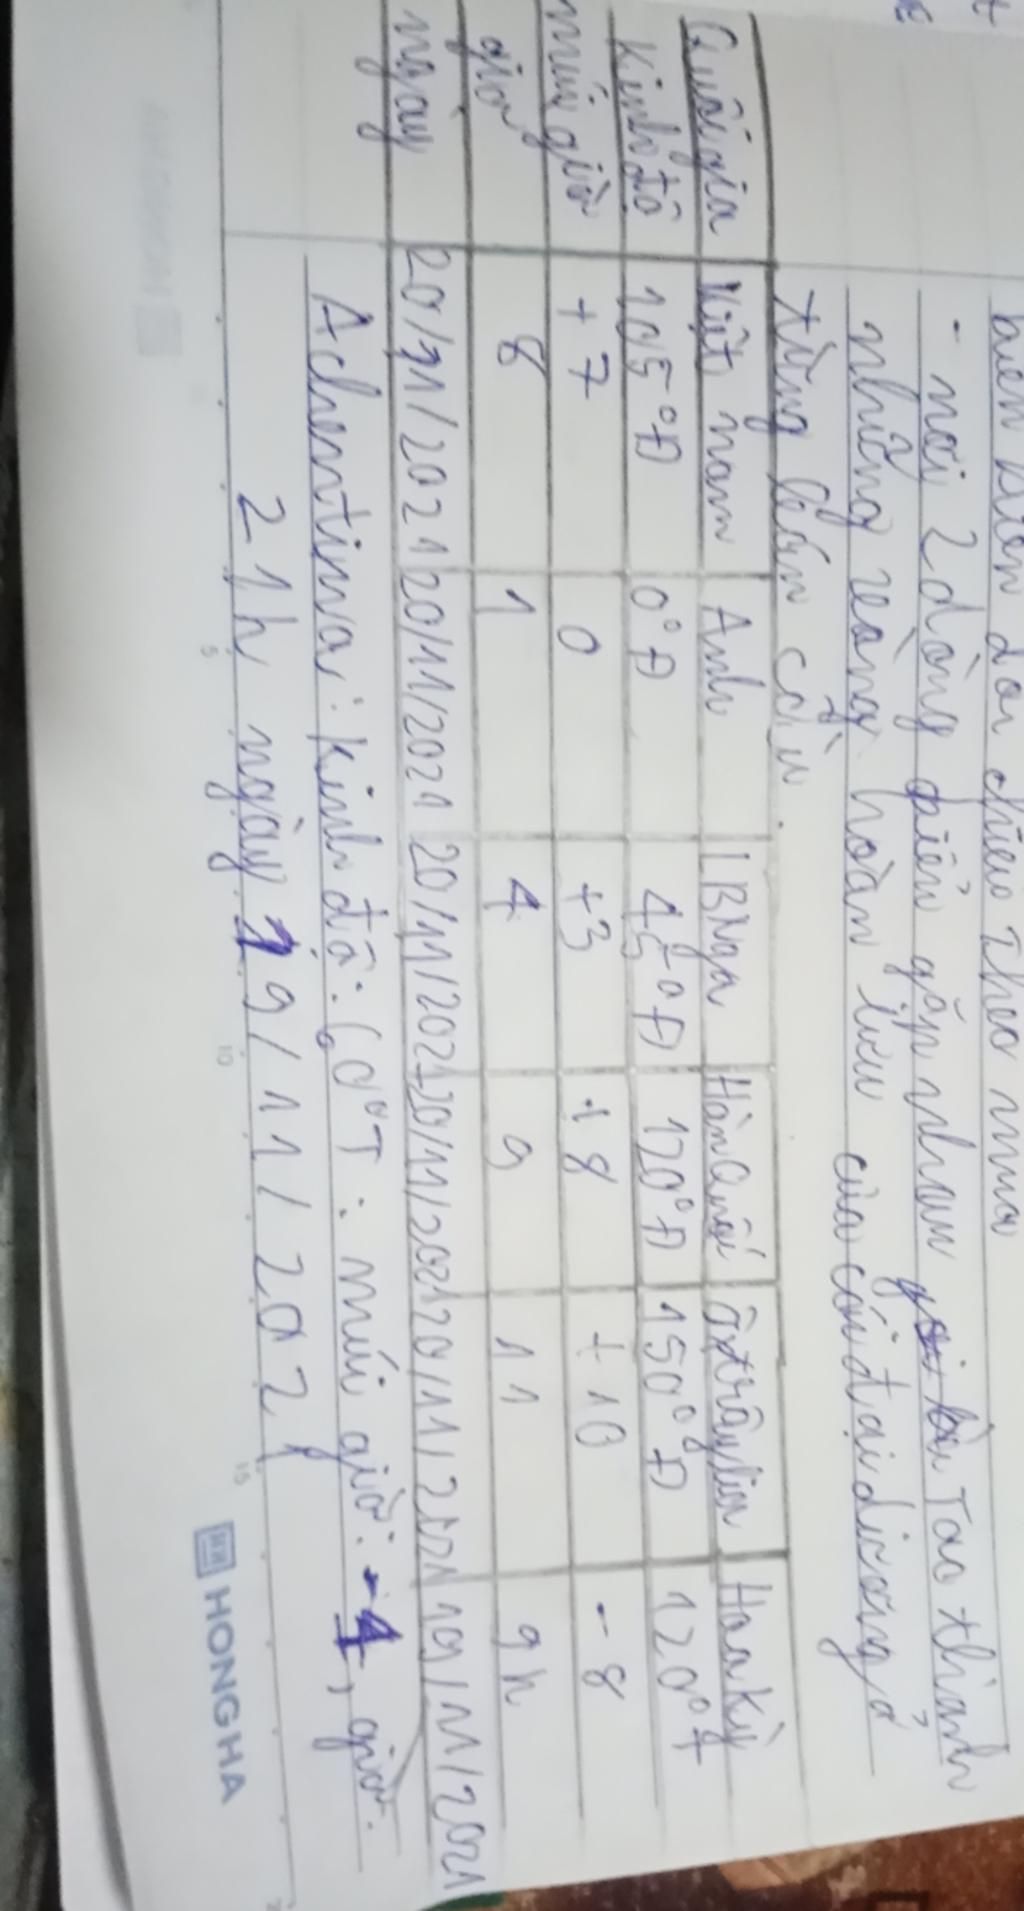 biến
- nơi 2 dòng biển gặp nhau Tao thành
những vòng hoàn lưu của các đại dương ở
từng bán cầu.
Quốc gia Việt nam Anh LBNga Hàn Quốc Ôxtrâylia Hoa Kỳ
Kinh độ 105°Đ 0°Đ 45°Đ 120°Đ 150°Đ 120°T
múi giờ +7 0 +3 +8 +10 -8
giờ 8 1 4 9 11 9h
ngày 20/11/2021 20/11/2021 20/11/2021 20/11/2021 20/11/2021 19/11/2021
Achentina: Kinh độ: 60°T: múi giờ: -4, giờ:
21h ngày 19/11/2021
HONGHA